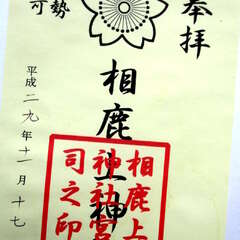 奉拝
相鹿上神
勢
可
平成二九年十一月十七
相鹿上
神社宮
司之印